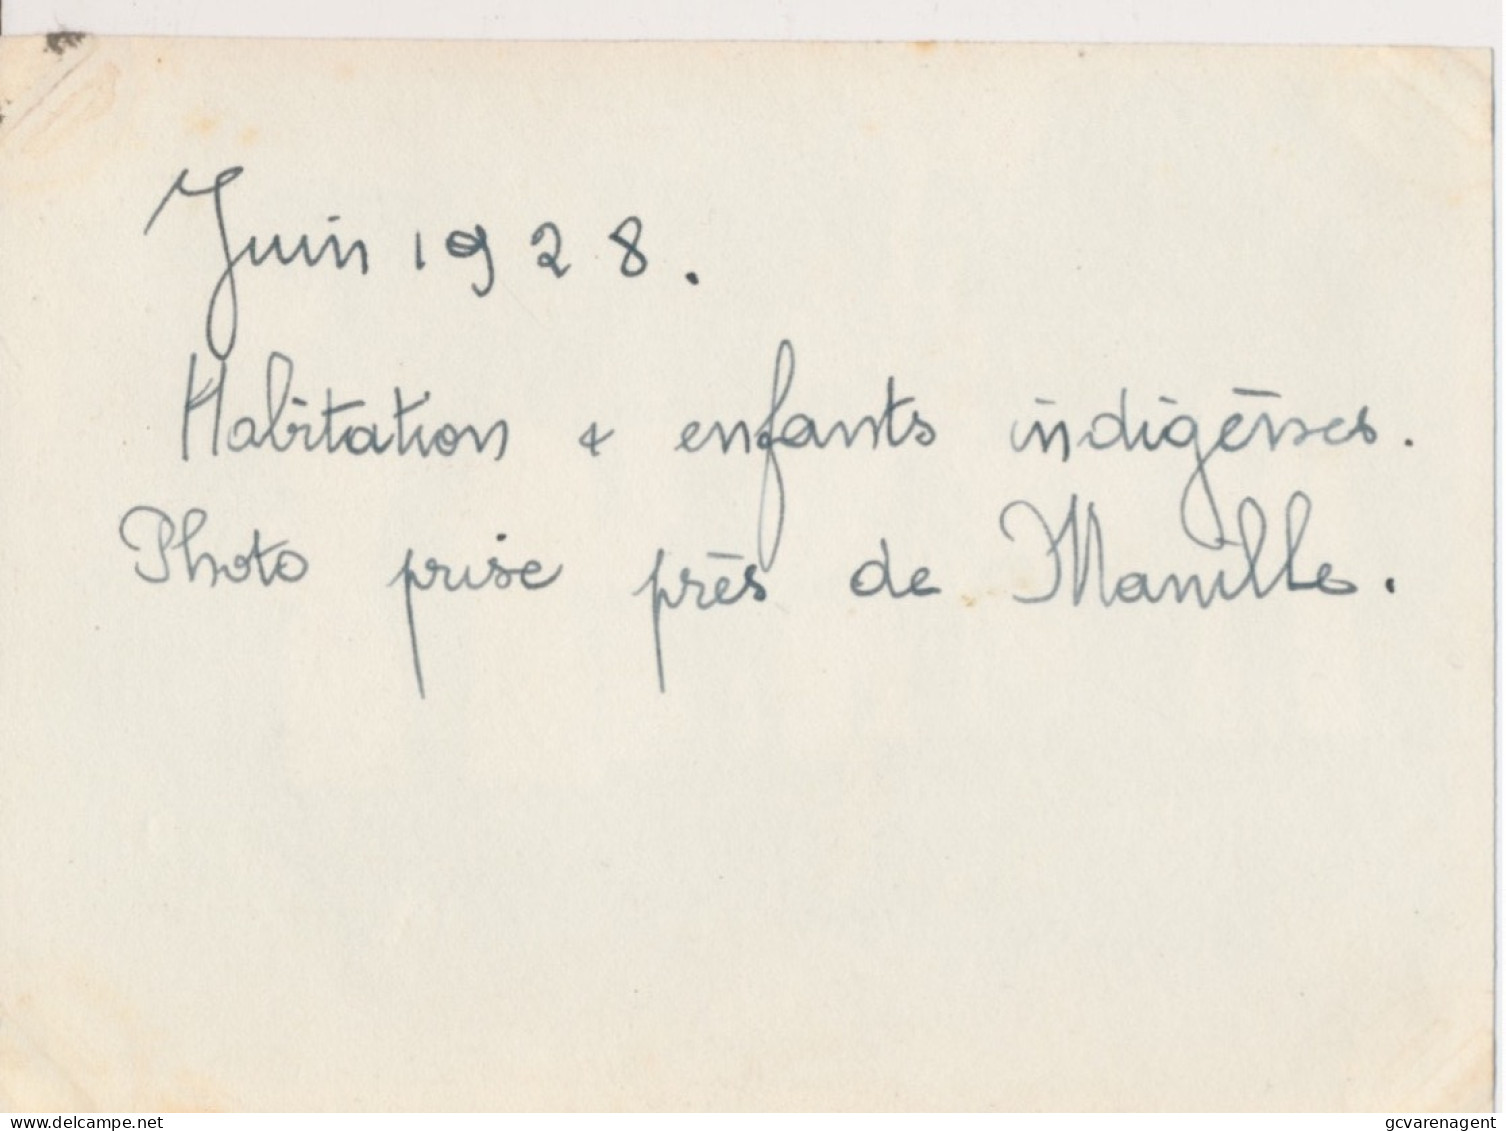 Juin 1928.
Habitation & enfants indigènes.
Photo prise près de Manille.
delcampe.net
gcvarenagent